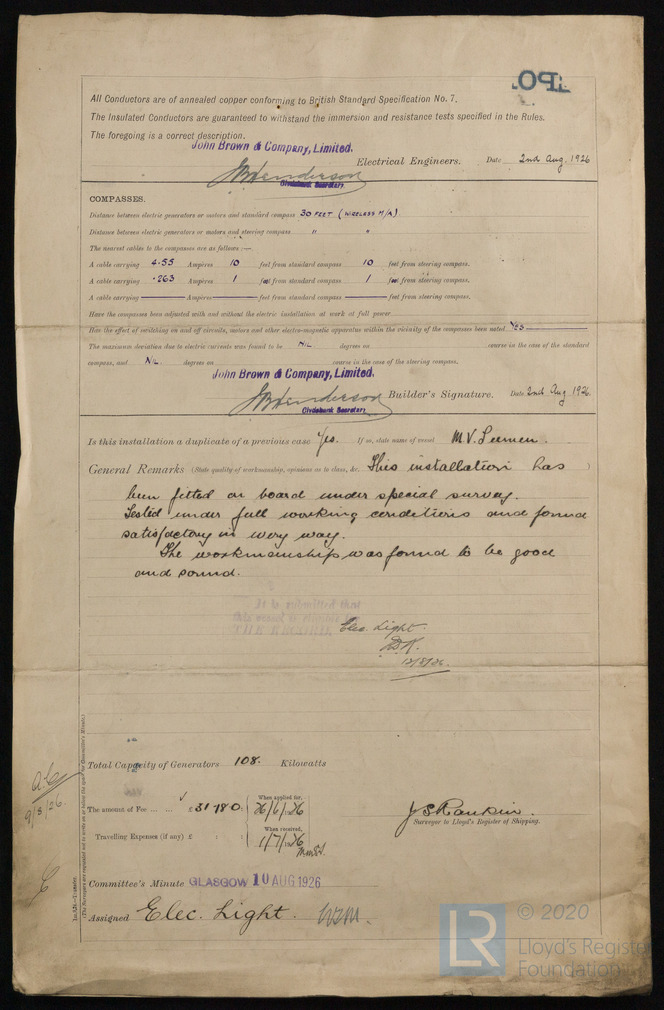 All Conductors are of annealed copper conforming to British Standard Specification No. 7.
The Insulated Conductors are guaranteed to withstand the immersion and resistance tests specified in the Rules.
The foregoing is a correct description.
John Brown & Company, Limited.
J B Henderson Electrical Engineers. Date 2nd Aug. 1926
Clydebank Secretary.
COMPASSES.
Distance between electric generators or motors and standard compass 30 FEET (WIRELESS M/A)
Distance between electric generators or motors and steering compass " "
The nearest cables to the compasses are as follows:—
A cable carrying 4.55 Ampères 10 feet from standard compass 10 feet from steering compass.
A cable carrying .263 Ampères 1 feet from standard compass 1 feet from steering compass.
A cable carrying Ampères feet from standard compass feet from steering compass.
Have the compasses been adjusted with and without the electric installation at work at full power
Has the effect of switching on and off circuits, motors and other electro-magnetic apparatus within the vicinity of the compasses been noted YES
The maximum deviation due to electric currents was found to be NIL degrees on course in the case of the standard
compass, and NIL degrees on course in the case of the steering compass.
John Brown & Company, Limited.
J B Henderson Builder's Signature. Date 2nd Aug 1926.
Clydebank Secretary.
Is this installation a duplicate of a previous case Yes. If so, state name of vessel M.V.
General Remarks (State quality of workmanship, opinions as to class, &c. This installation has )
been fitted on board under special survey.
Tested under full working conditions and found
satisfactory in every way.
The workmanship was found to be good
and sound.
THE RECORD
Elec. Light.
12/8/26.
Total Capacity of Generators 108. Kilowatts
The amount of Fee ... ... £ 31 :
When applied for,
26/6/1926
Travelling Expenses (if any) £ : :
When received,
1/7/1926
J S Rankin.
Surveyor to Lloyd's Register of Shipping.
9/8/26.
Committee's Minute GLASGOW 10 AUG 1926
Assigned Elec. Light.
LR © 2020
Lloyd's Register
Foundation